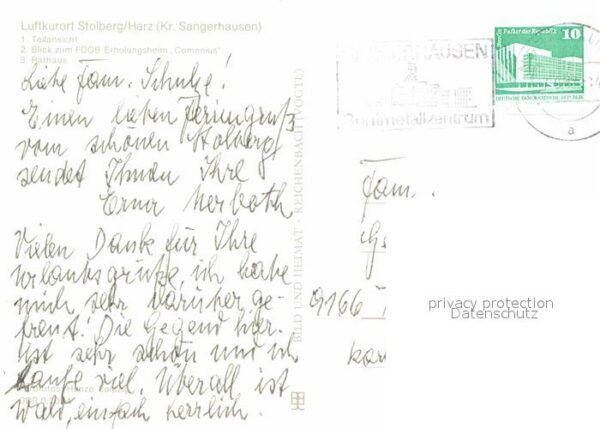 Luftkurort Stolberg/Harz (Kr. Sangerhausen)
1. Teilansicht
2. Blick zum FDGB-Erholungsheim „Comenius"
3. Rathaus
Liebe Fam. Schulze!
Einen lieben Feriengruß
vom schönen Stolberg
sendet Ihnen Ihre
Erna
Vielen Dank für Ihre
Urlaubsgrüße, ich habe
mich sehr darüber ge-
freut! Die Gegend hier
ist sehr schön und ich
laufe viel. Überall ist
Wald, einfach herrlich.
BILD UND HEIMAT · REICHENBACH (VOGTL)
HAUSEN
Buntmetallzentrum
Palast der Republik
10
DEUTSCHE DEMOKRATISCHE REPUBLIK
a
Fam.
9166
privacy protection
Datenschutz